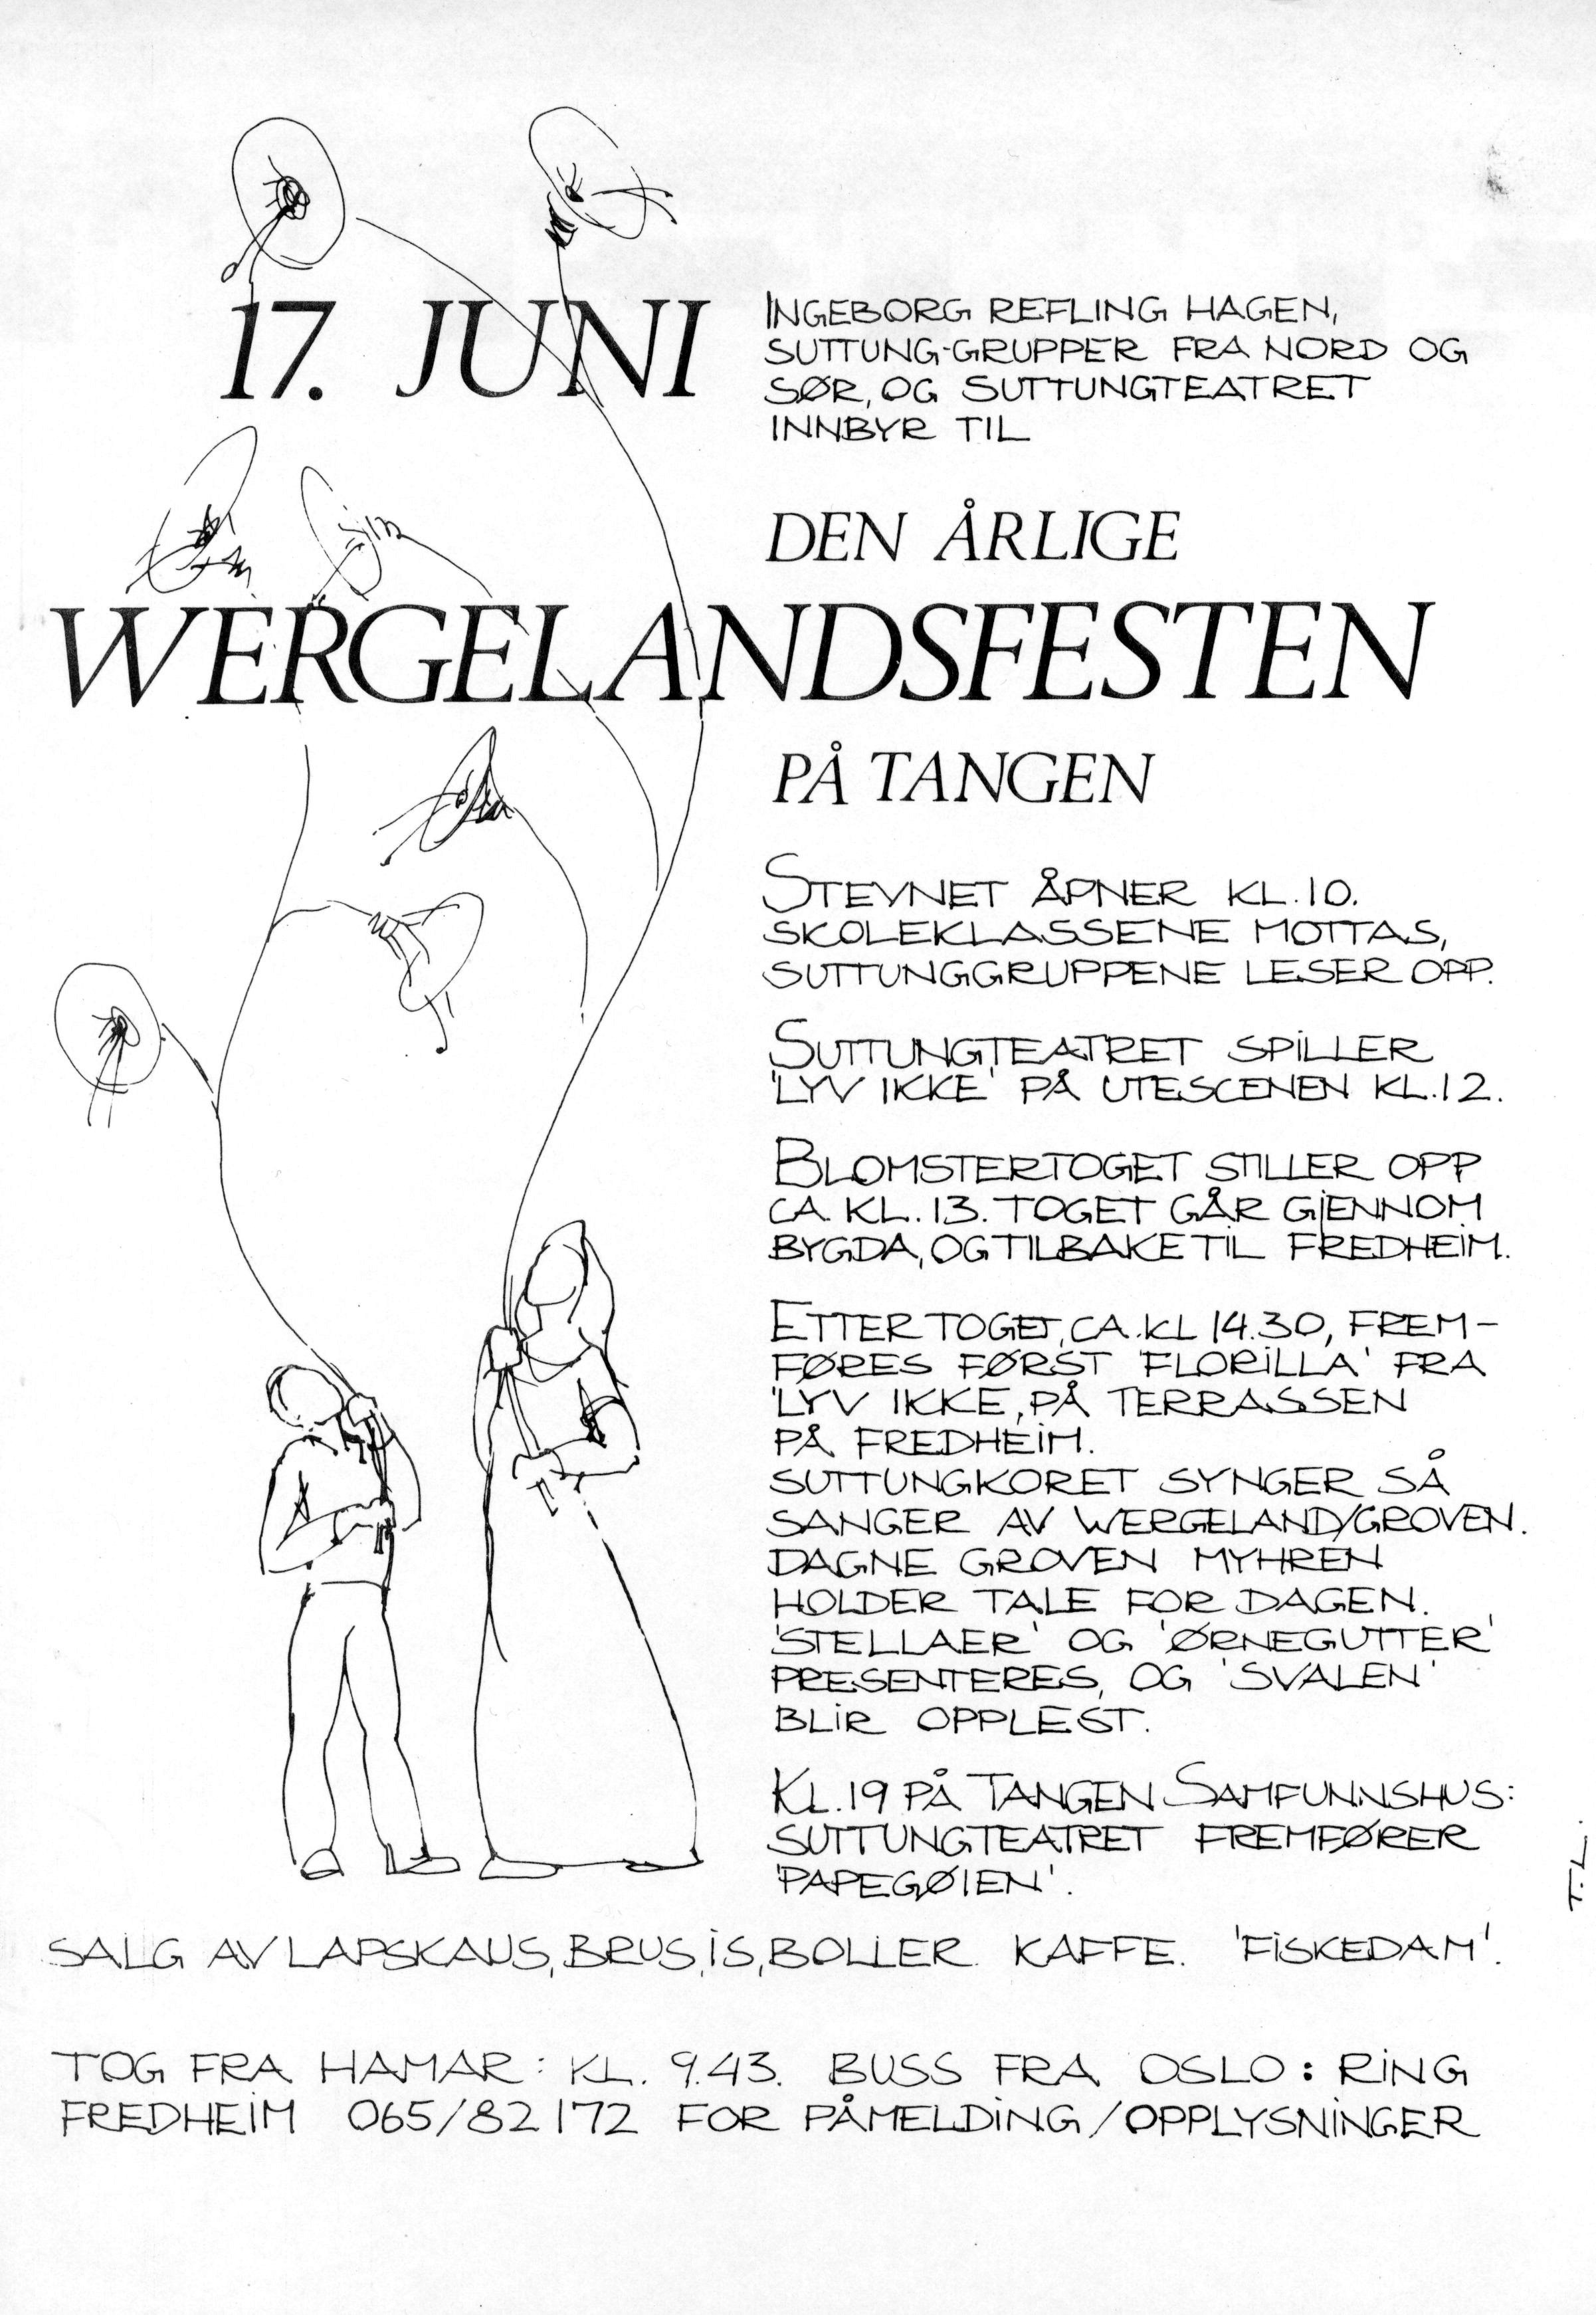 17. JUNI
INGEBORG REFLING HAGEN,
SUTTUNG-GRUPPER FRA NORD OG
SØR, OG SUTTUNGTEATRET
INNBYR TIL
DEN ÅRLIGE
WERGELANDSFESTEN
PÅ TANGEN
STEVNET ÅPNER KL. 10.
SKOLEKLASSENE MOTTAS,
SUTTUNGGRUPPENE LESER OPP.
SUTTUNGTEATRET SPILLER
'LYV IKKE' PÅ UTESCENEN KL. 12.
BLOMSTERTOGET STILLER OPP
CA. KL. 13. TOGET GÅR GJENNOM
BYGDA, OG TILBAKE TIL FREDHEIM.
ETTER TOGET, CA. KL 14.30, FREM-
FØRES FØRST 'FLORILLA' FRA
'LYV IKKE', PÅ TERRASSEN
PÅ FREDHEIM.
SUTTUNGKORET SYNGER SÅ
SANGER AV WERGELAND/GROVEN.
DAGNE GROVEN MYHREN
HOLDER TALE FOR DAGEN.
'STELLAER' OG 'ØRNEGUTTER'
PRESENTERES, OG 'SVALEN'
BLIR OPPLEST.
KL. 19 PÅ TANGEN SAMFUNNSHUS:
SUTTUNGTEATRET FREMFØRER
'PAPEGØIEN'.
T.L.
SALG AV LAPSKAUS, BRUS, IS, BOLLER. KAFFE. 'FISKEDAM'.
TOG FRA HAMAR: KL. 9.43. BUSS FRA OSLO: RING
FREDHEIM 065/82172 FOR PÅMELDING/OPPLYSNINGER